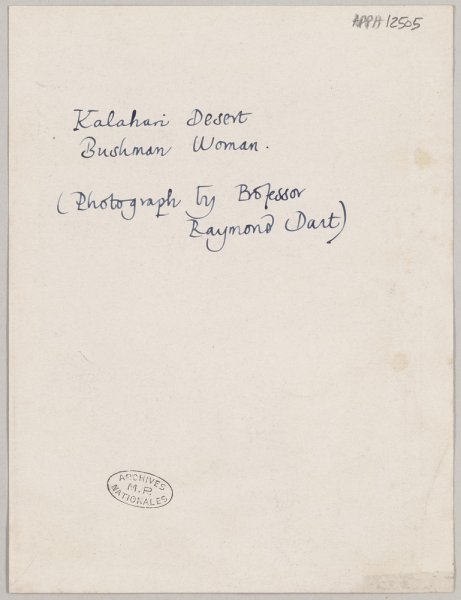 APPA12505
Kalahari Desert
Bushman Woman.
(Photograph by Professor
Raymond Dart)
ARCHIVES
M.P.
NATIONALES